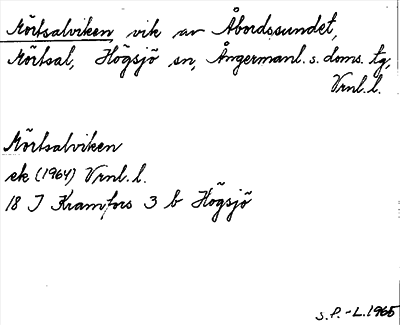 Mörtsalviken, vik av Åbordssundet,
Mörtsal, Högsjö sn, Ångermanl. s. doms. tg,
Vrnl. l.
Mörtsalviken
ek (1964) Vrnl. l.
18 J Kramfors 3 b Högsjö
S.P.-L. 1965